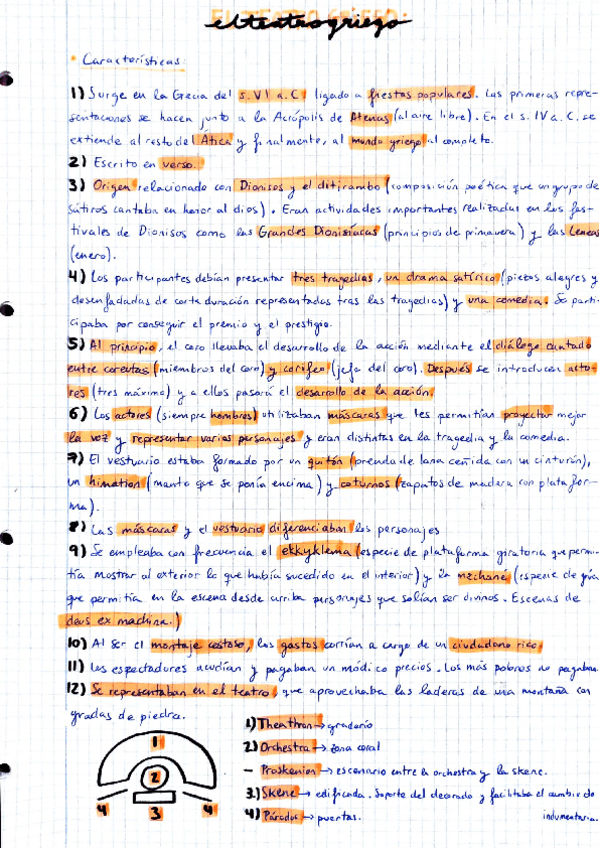 el teatro griego
• Características:
1) Surge en la Grecia del s. VI a.C. ligado a fiestas populares. Las primeras repre-
sentaciones se hacen junto a la Acrópolis de Atenas (al aire libre). En el s. IV a.C. se
extiende al resto del Ática y finalmente, al mundo griego al completo.
2) Escrito en verso.
3) Origen relacionado con Dionisos y el ditirambo (composición poética que un grupo de
sátiros cantaba en honor al dios). Eran actividades importantes realizadas en los fes-
tivales de Dionisos como las Grandes Dionisíacas (principios de primavera) y las Leneas
(enero).
4) Los participantes debían presentar tres tragedias, un drama satírico (piezas alegres y
desenfadadas de corta duración representadas tras las tragedias) y una comedia. Se parti-
cipaba por conseguir el premio y el prestigio.
5) Al principio, el coro llevaba el desarrollo de la acción mediante el diálogo cantado
entre coreutas (miembros del coro) y corifeo (jefe del coro). Después se introducen acto-
res (tres máximo) y a ellos pasará el desarrollo de la acción.
6) Los actores (siempre hombres) utilizaban máscaras que les permitían proyectar mejor
la voz y representar varios personajes y eran distintas en la tragedia y la comedia.
7) El vestuario estaba formado por un quitón (prenda de lana ceñida con un cinturón),
un himation (manto que se ponía encima) y coturnos (zapatos de madera con platafor-
ma).
8) Las máscaras y el vestuario diferenciaban los personajes
9) Se empleaba con frecuencia el ekkyklema (especie de plataforma giratoria que permi-
tía mostrar al exterior lo que había sucedido en el interior) y la mechané (especie de grúa
que permitía en la escena desde arriba personajes que solían ser divinos. Escenas de
deus ex machina.)
10) Al ser el montaje costoso, los gastos corrían a cargo de un ciudadano rico.
11) Los espectadores acudían y pagaban un módico precios. Los más pobres no pagaban.
12) Se representaban en el teatro, que aprovechaba las laderas de una montaña con
gradas de piedra.
1) Theathron → graderío
2) Orchestra → zona coral
– Proskenion → escenario entre la orchestra y la skene.
3) Skene → edificada. Soporte del decorado y facilitaba el cambio de
indumentaria.
4) Párodos → puertas.
1
2
4
3
4